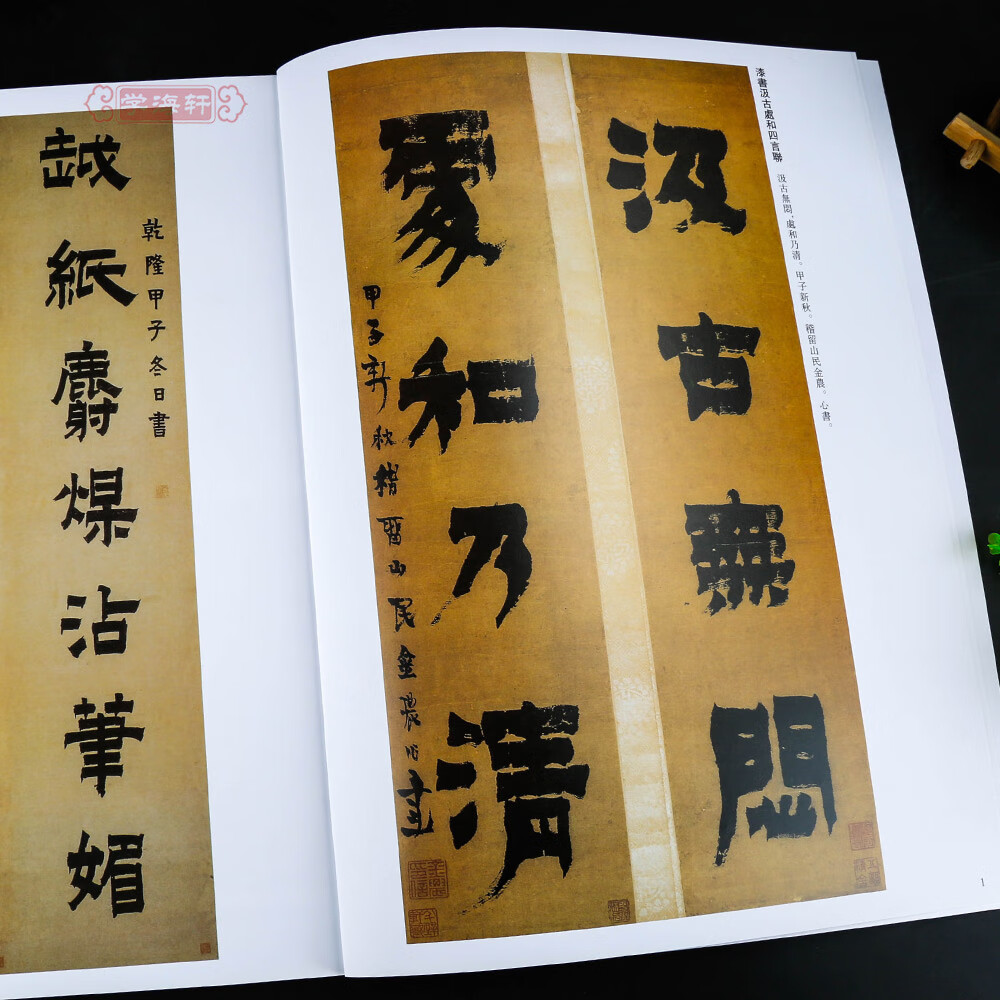 学海轩
漆書汲古處和四言聯
汲古無悶，處和乃清。甲子新秋。稽留山民金農。心書。
汲古無悶
處和乃清
甲子新秋稽留山民金農心書
1
乾隆甲子冬日書
越紙麝煤沾筆媚